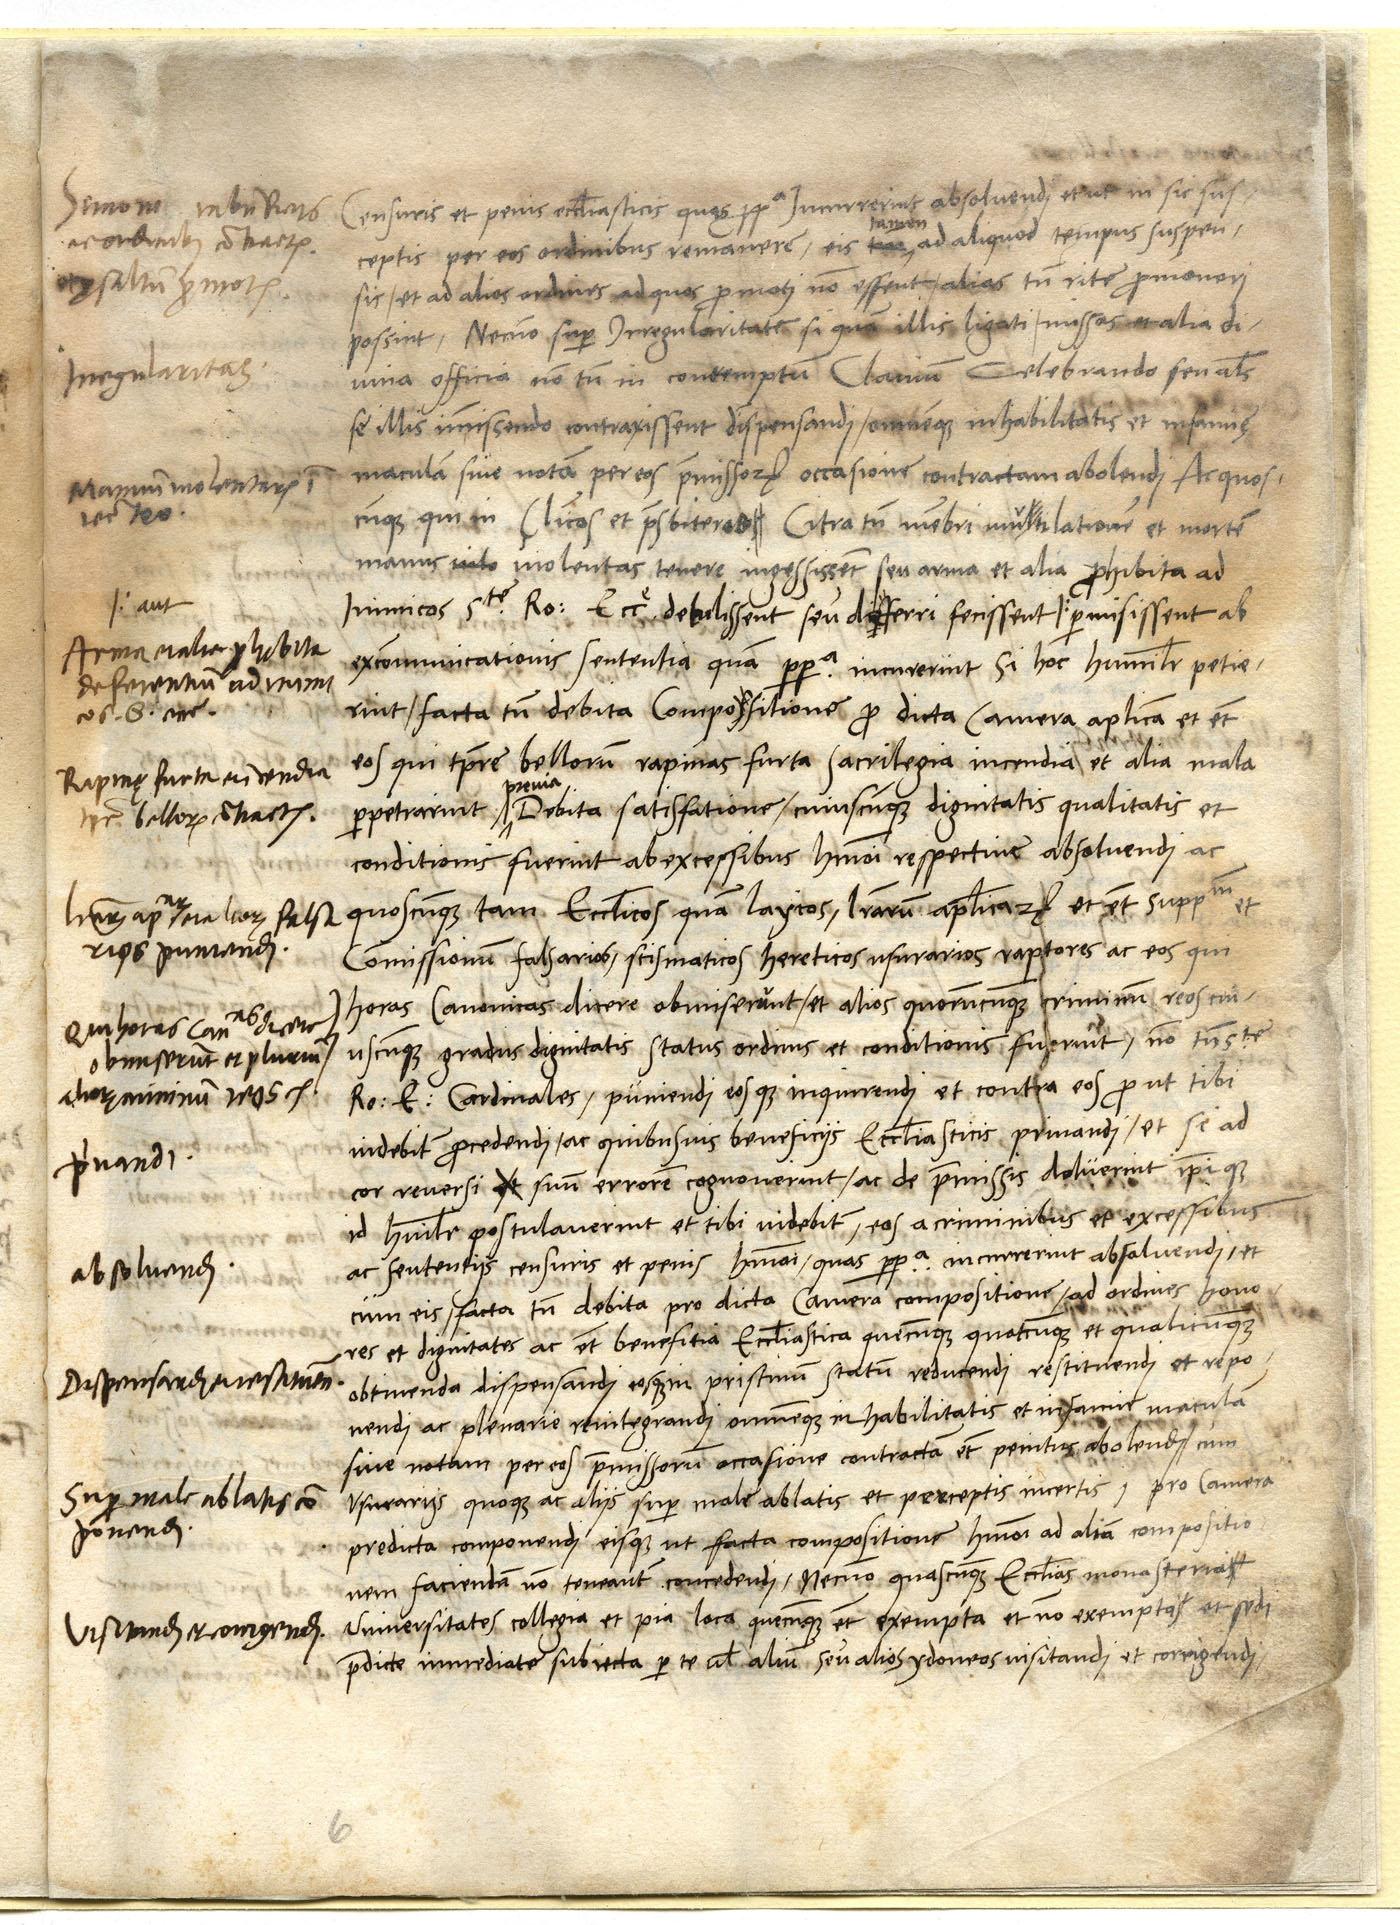 Censuris et penis eccl̄iasticis quęs pp.ª Incurrerint absolvendi et ut in sic sus-
ceptis per eos ordinibus remanere, eis tamen ad aliquod tempus suspen-
sis / et ad alios ordines ad quos p̄moti nō essent / alias tn̄ rite p̄moveri
possint, Necnō sup̱ Irregularitate si quā illis ligati / missas et alia di-
uina officia nō tn̄ in contemptū Clauiū Celebrando seu al̄s
se illis im̄iscendo contraxissent dispensandi / omnēqꝫ inhabilitatis et infamię
maculā siue notā per eos p̄missoꝝ occasione contractam abolendi Ac quos-
cūqꝫ qui in Cl̄icos et p̄sbiteros Citra tn̄ mēbri mutilationē et mortē
manus violentas temere ingessissēt seu arma et alia ꝓhibita ad
Inimicos S.te Ro: Ecc.ę detulissent seu deferri fecissent / p̱misissent ab
excōmunicationis sententia quā pp.ª incurerint si hoc humil̄r petie-
rint / facta tn̄ debita Compositione ꝓ dicta Camera aplica et ēt
eos qui tp̄re bellorū rapinas furta sacrilegia incendia et alia mala
p̱petrarint / previa Debita satisfatione / cuiuscūqꝫ dignitatis qualitatis et
conditionis fuerint ab excessibus hm̄oi respective absoluendi ac
quoscūqꝫ tam Eccl̄icos quā laycos, lr̄arū apl̄icaꝝ et ēt supp.m et
Com̄issionum falsarios, scismaticos hereticos usurarios raptores ac eos qui
horas Canonicas dicere obmiserūt / et alios quorūcūqꝫ criminū reos cui-
uscūqꝫ gradus dignitatis status ordinis et conditionis fuerint, nō tn̄ S.te
Ro: E: Cardinales, puniendi eosqꝫ inquirendi et contra eos ꝓ ut tibi
uidebit̄ ꝓcedendi / ac quibusuis beneficijs Eccl̄iasticis priuandi / et si ad
cor reuersi suū errorē cognouerint / ac de p̄missis doluerint ip̄iqꝫ
id hūil̄r postulauerint et tibi uidebit̄, eos a criminibus et excessibus
ac sententijs censuris et penis hm̄oi, quas pp.ª incurrerint absoluendi, et
cum eis, facta tn̄ debita pro dicta Camera compositione, ad ordines hono-
res et dignitates ac ēt benefitia Eccl̄iastica quecūqꝫ quotcūqꝫ et qualiacūqꝫ
obtinenda dispensandi eosqꝫ in pristinū statū reducendi restituendi et repo-
nendi ac plenarie reintegrandi omnēqꝫ inhabilitatis et infamie maculā
siue notam per eos p̄missorū occasione contractā ēt penitus abolendi / cum
Vsurarijs quoqꝫ ac alijs sup̱ male ablatis et perceptis incertis, pro Camera
predicta componendi eisqꝫ ut facta compositione hm̄oi ad aliā compositio-
nem faciendā nō teneant̄ concedendi, Necnō quascūqꝫ Eccl̄ias monasteria
Vniuersitates collegia et pia loca quecūqꝫ ēt exempta et nō exempta et sedi
p̄dicte immediate subiecta p̱ te ul̄ aliū seu alios ydoneos uisitandi et corrigendi,
Irregularitas.
I: aut
Arma et alia ꝓhibita
deferentiū ad inimi
cos. S. ecc̄e.
Rapinę furta incendia
tpr̄e bellorꝫ cōtract.
Qui horas Can.as dicere
obmiserūt et plurium
alioꝝ criminū reos
p̄uandi.
absoluendi.
Dispensandi et restituen.
Sup̱ male ablatis cō
ponend.
Visitandi et corrigendi.
6